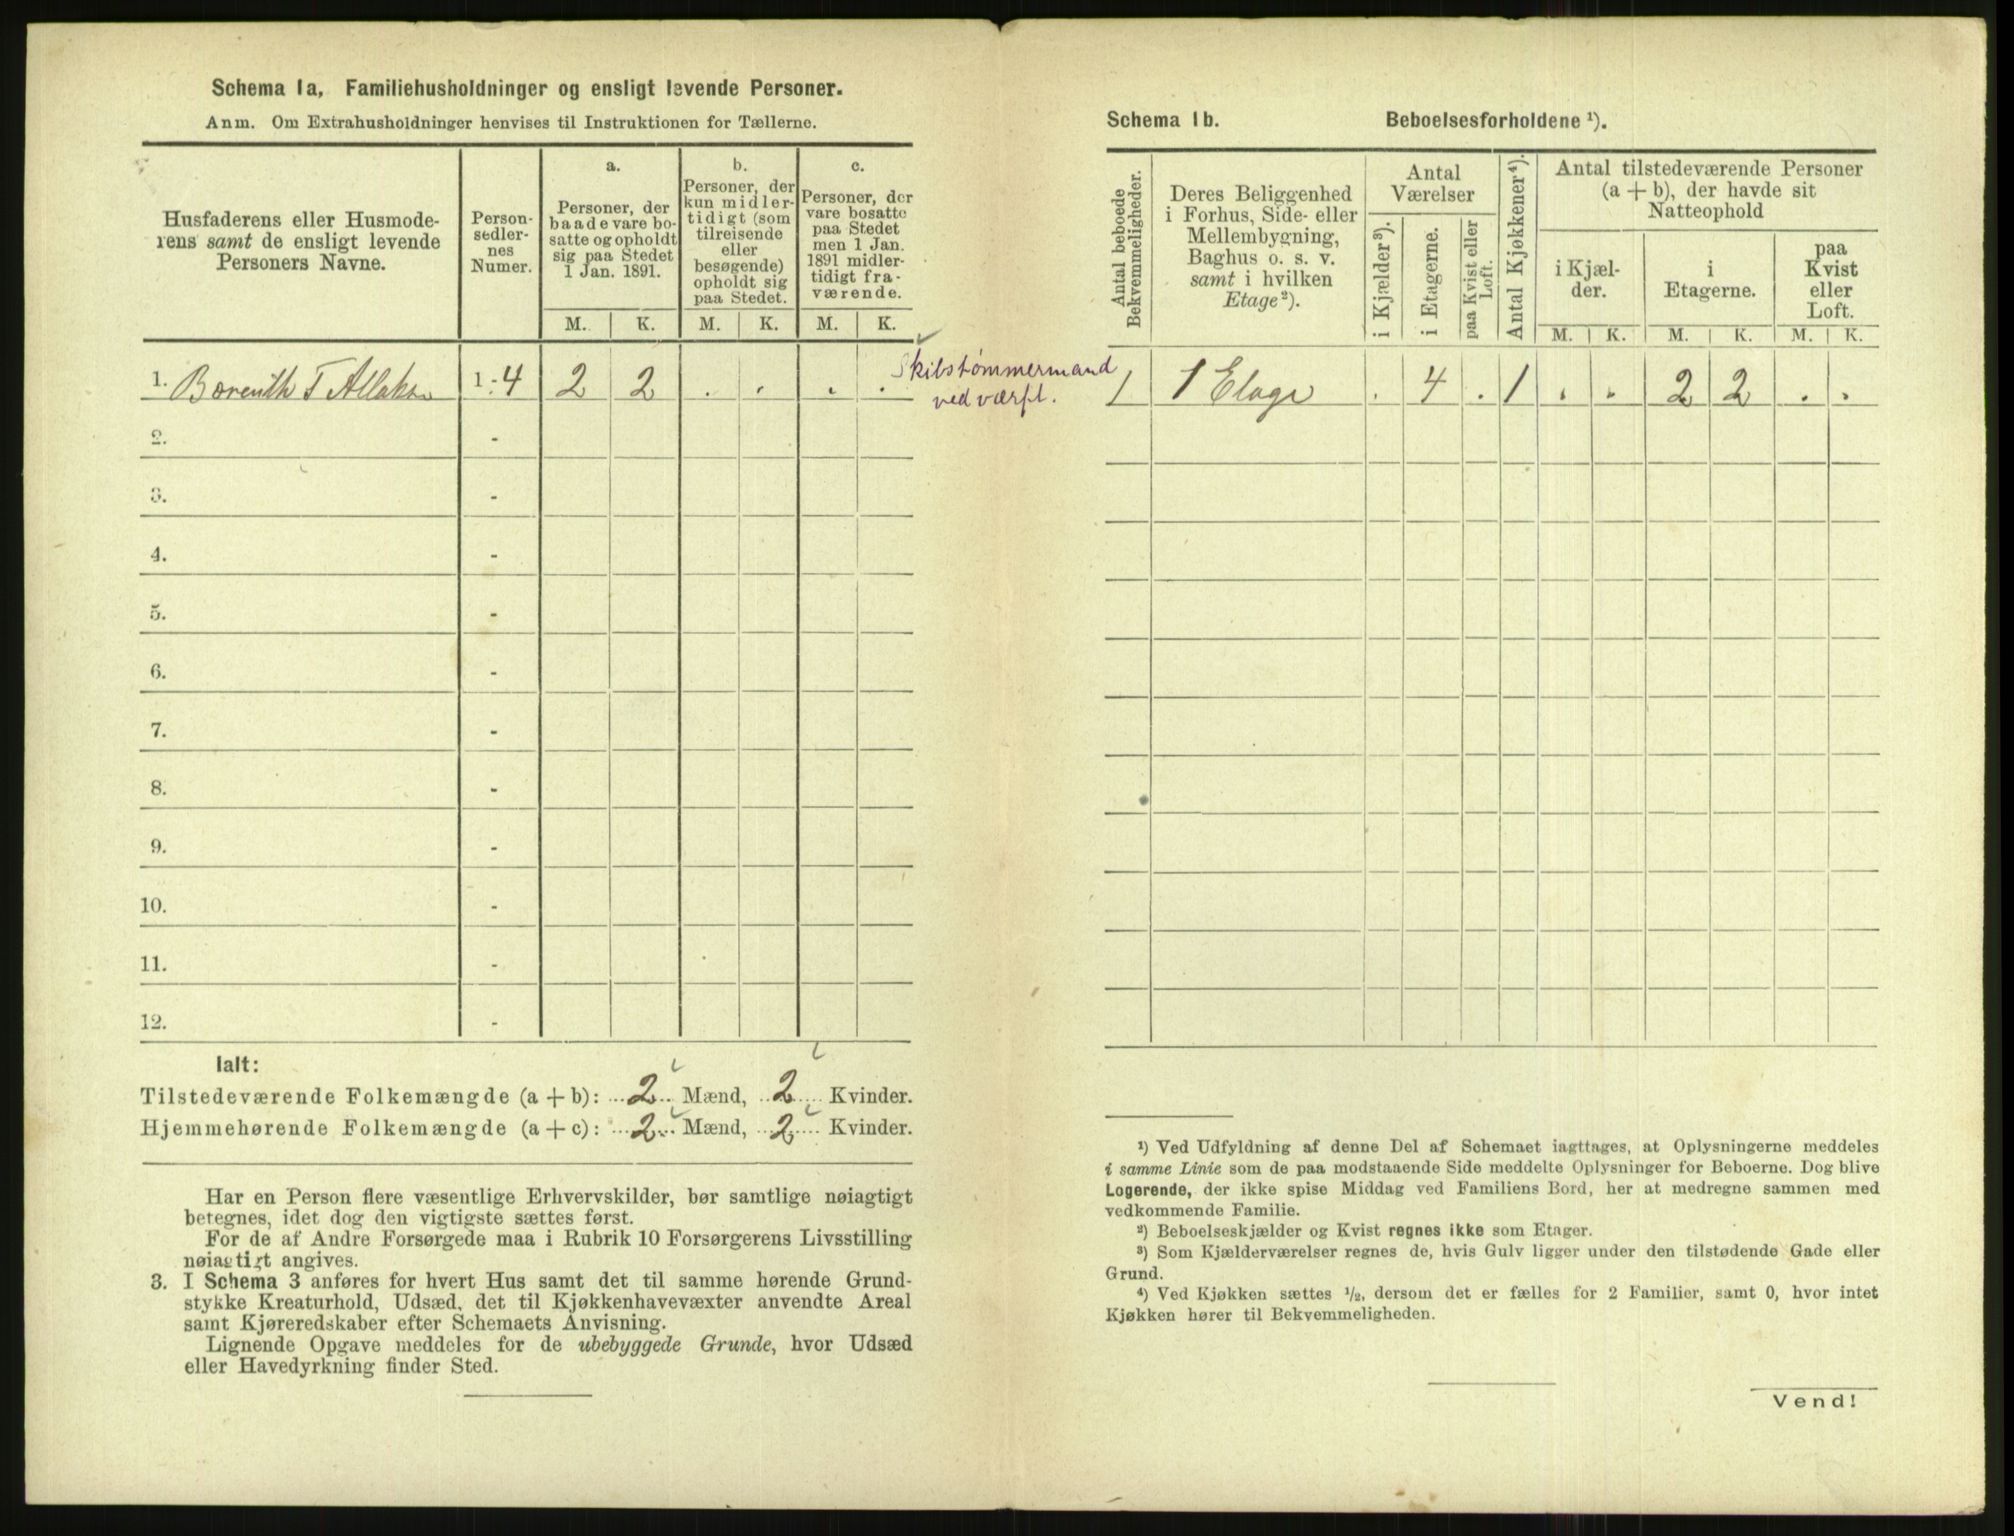 Schema 1a, Familiehusholdninger og ensligt levende Personer.
Anm. Om Extrahusholdninger henvises til Instruktionen for Tællerne.
Husfaderens eller Husmode-
rens samt de ensligt levende
Personers Navne.
Person-
sedler-
nes
Numer.
a.
Personer, der
baade vare bo-
satte og opholdt
sig paa Stedet
1 Jan. 1891.
b.
Personer, der
kun midler-
tidigt (som
tilreisende
eller
besøgende)
opholdt sig
paa Stedet.
c.
Personer, der
vare bosatte
paa Stedet
men 1 Jan.
1891 midler-
tidigt fra-
værende.
M. K. M. K. M. K.
1. T 1 - 4 2 2 . . . .
Skibstømmermand
ved værft.
2. -
3. -
4. -
5. -
6. -
7. -
8. -
9. -
10. -
11. -
12. -
Ialt:
Tilstedeværende Folkemængde (a + b): 2 Mænd, 2 Kvinder.
Hjemmehørende Folkemængde (a + c): 2 Mænd, 2 Kvinder.
Har en Person flere væsentlige Erhvervskilder, bør samtlige nøiagtigt
betegnes, idet dog den vigtigste sættes først.
For de af Andre Forsørgede maa i Rubrik 10 Forsørgerens Livsstilling
nøiagtigt angives.
3. I Schema 3 anføres for hvert Hus samt det til samme hørende Grund-
stykke Kreaturhold, Udsæd, det til Kjøkkenhavevæxter anvendte Areal
samt Kjøreredskaber efter Schemaets Anvisning.
Lignende Opgave meddeles for de ubebyggede Grunde, hvor Udsæd
eller Havedyrkning finder Sted.
Schema 1b. Beboelsesforholdene ¹).
Antal beboede
Bekvemmeligheder.
Deres Beliggenhed
i Forhus, Side- eller
Mellembygning,
Baghus o. s. v.
samt i hvilken
Etage²).
Antal
Værelser
i Kjælder³).
i Etagerne.
paa Kvist eller
Loft.
Antal Kjøkkener⁴).
Antal tilstedeværende Personer
(a + b), der havde sit
Natteophold
i Kjæl-
der.
i
Etagerne.
paa
Kvist
eller
Loft.
M. K. M. K. M. K.
1 1 Etage . 4 . 1 . . 2 2 . .
¹) Ved Udfyldning af denne Del af Schemaet iagttages, at Oplysningerne meddeles
i samme Linie som de paa modstaaende Side meddelte Oplysninger for Beboerne. Dog blive
Logerende, der ikke spise Middag ved Familiens Bord, her at medregne sammen med
vedkommende Familie.
²) Beboelseskjælder og Kvist regnes ikke som Etager.
³) Som Kjælderværelser regnes de, hvis Gulv ligger under den tilstødende Gade eller
Grund.
⁴) Ved Kjøkken sættes ½, dersom det er fælles for 2 Familier, samt 0, hvor intet
Kjøkken hører til Bekvemmeligheden.
Vend!